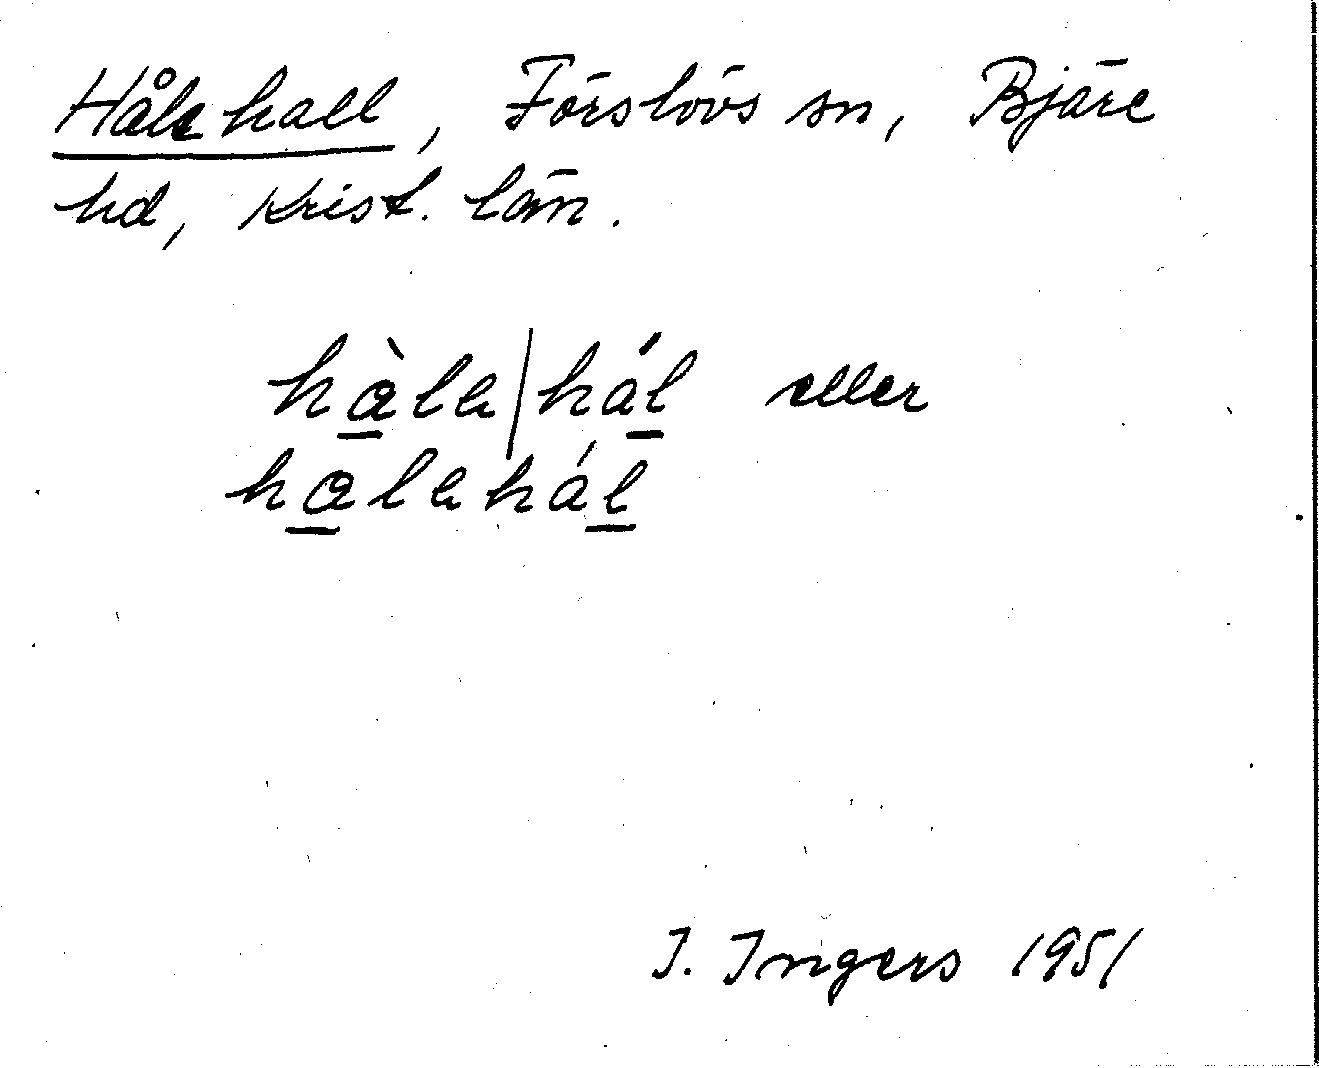 Hålehall, Förslövs sn, Bjäre
hd, Krist. län.
hàle|hál eller
halehál
I. Ingers 1951